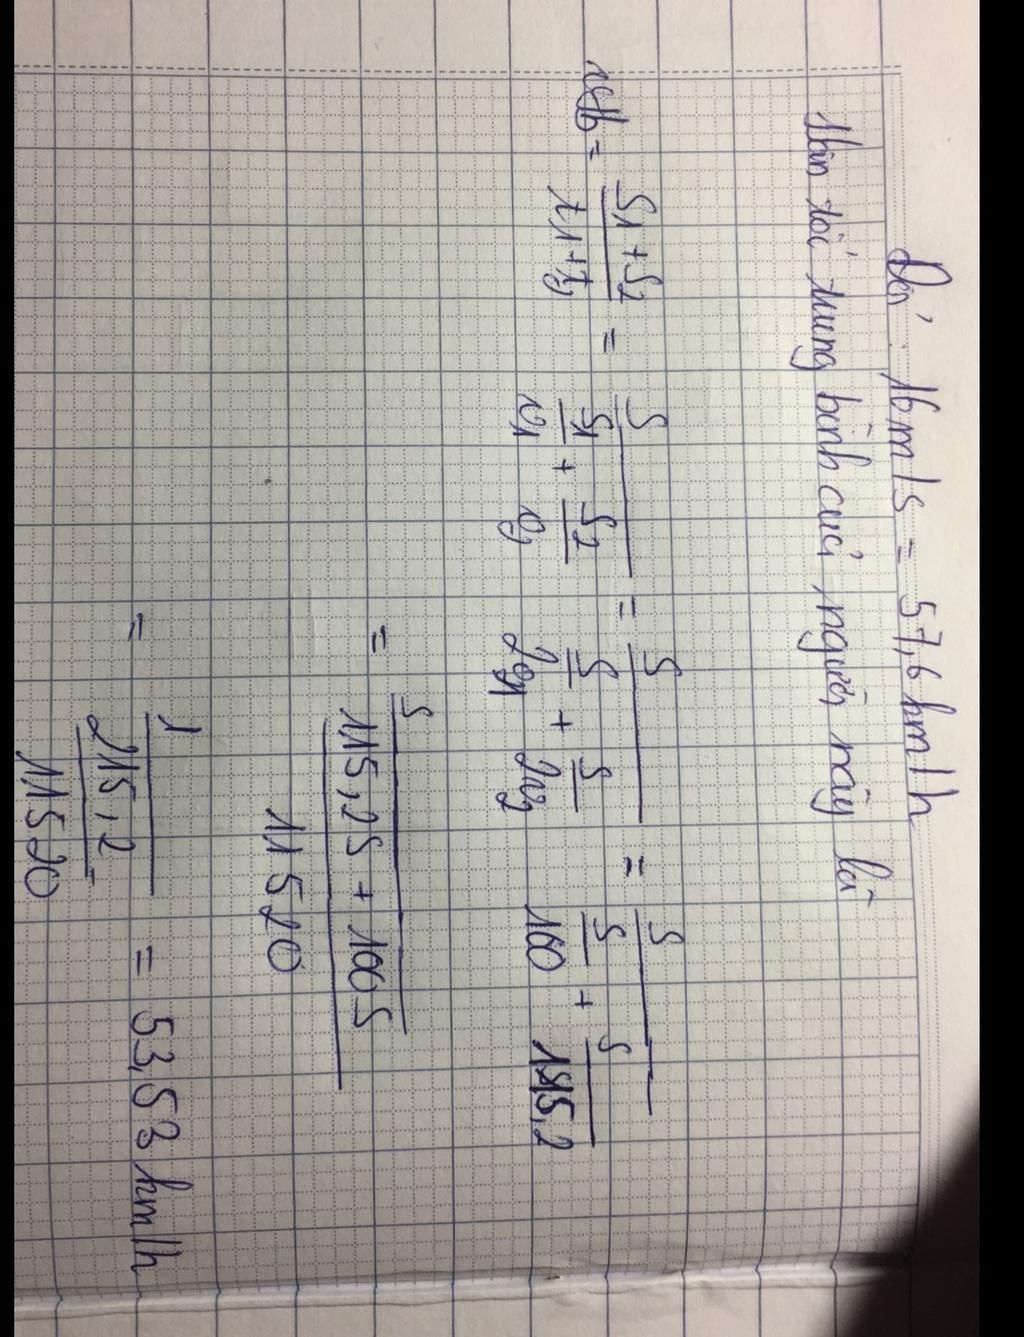 Đổi 16m/s = 57,6 km/h
Vận tốc trung bình của người này là
vtb = S1+S2 / t1+t2 = S / (S1/v1 + S2/v2) = S / (S/2v1 + S/2v2) = S / (S/100 + S/115,2)
= S / (115,2S + 100S / 11520)
= 1 / (215,2 / 11520) = 53,53 km/h